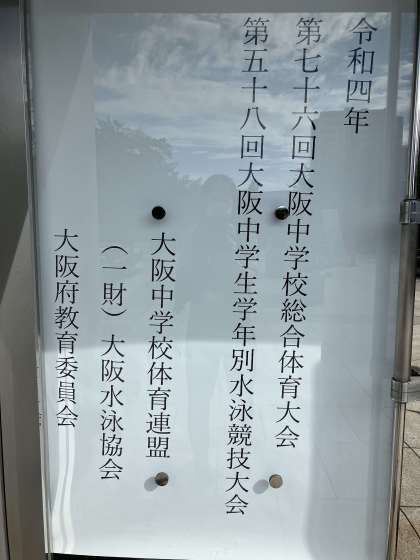 令和四年
第七十六回大阪中学校総合体育大会
第五十八回大阪中学生学年別水泳競技大会
大阪中学校体育連盟
（一財）大阪水泳協会
大阪府教育委員会